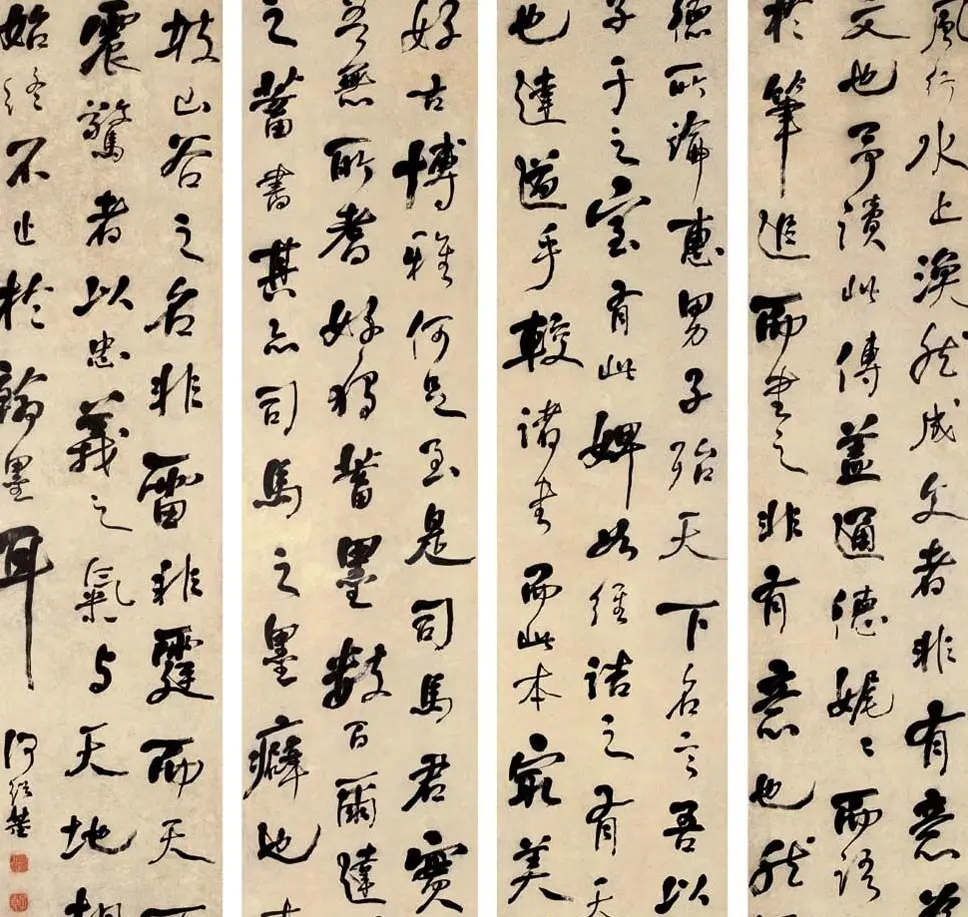 風行水上渙然成文者非有意
文也予讀此傳蓋通德娓娓而語
於筆追而書之非有意也然
德所論惠男子殆天下名言吾以
子于之室有此婢如經詰之有天
也達道手較諸書而此本最美
好古博雅何足至是司馬君實
吾無所耆好獨蓄墨數百爾達
之蓄書其亦司馬之墨癖也
坡山谷之名非雷非霆而天
震驚者以忠義之氣与天地相
始終不止於翰墨耳
何紹基